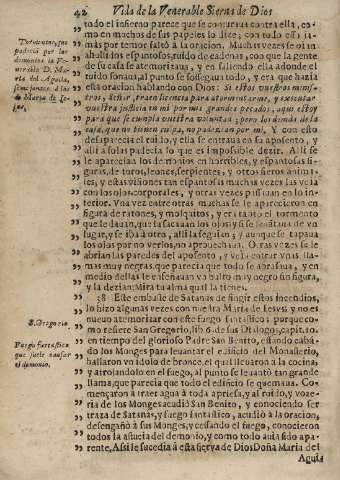 42 Vida de la Venerable Sierva de Dios
todo el infierno parece que se conjuraua contra ella, co-
mo en muchos de sus papeles lo dize, con todo esso ja-
mas por temor faltó a la oracion. Muchas vezes se oian
Tormentos, que
padecia por los
demonios la Ve-
nerable D. Ma-
ria del Aguila,
semejantes à los
de Maria de Je-
sus.
ahullidos espantosos, ruido de cadenas, con que la gente
de su casa se atemorizaua, y en saliendo ella adonde el
ruido sonaua, al punto se sossegaua todo, y era que hazia
esta oracion hablando con Dios: Si estos vuestros minis-
tros, Señor, traen licencia para atormentarme, y executar
vuestra justicia en mi por mis grandes pecados, aqui estoy
para que se cumpla vuestra voluntad; pero los demás de la
casa, que no tienen culpa, no padezcan por mi. Y con esto
desaparecia el ruido, y ella se entraua en su aposento, y
alli à solas padecia lo que es impossible dezir. Alli se
le aparecian los demonios en horribles, y espantosas fi-
guras, de toros, leones, serpientes, y otros fieros anima-
les, y estas visiones tan espantosas muchas vezes las veia
con los ojos corporales, y otras vezes passauan en lo in-
terior. Vna vez entre otras muchas se le aparecieron en
figura de ratones, y mosquitos, y era tanto el tormento
que le dauan, que la sacauan los ojos, y si se leuantaua de vn
lugar, y se iba à otro, alli la seguian, y aunque se tapaua
los ojos por no verlos, no aprouechaua. Otras vezes se le
abrian las paredes del aposento, y veia entrar vnas lla-
mas muy negras, que parecia que todo se abrasaua, y en
medio dellas le enseñauan vn bulto muy negro sin figura,
y la dezian: Mira tu alma qual la tienes.
38 Este embuste de Satanas de fingir estos incendios,
lo hizo algunas vezes con nuestra Maria de Iesvs; y no es
S. Gregorio.
nueuo atemorizar con este fuego fantastico; porque co-
mo refiere San Gregorio, lib. 6. de sus Dialogos, capit. 10.
Fuego fantastico
que suele causar
el demonio.
en tiempo del glorioso Padre San Benito, estando caba-
do los Monges para leuantar el edificio del Monasterio,
hallaron vn idolo de bronce, el qual lleuaron à la cocina;
y arrojandolo en el fuego, al punto se leuantò tan grande
llama, que parecia que todo el edificio se quemaua. Co-
mençaron à traer agua à toda apriesa, y al ruido, y voze-
ria de los Monges acudiò San Benito, y conociendo ser
traza de Satanás, y fuego fantastico, acudiò à la oracion,
desengañò à sus Monges, y cessando el fuego, conocieron
todos la astucia del demonio, y como todo auia sido apa-
rente. Assi le sucedia à esta sierva de Dios Doña Maria del
Aguila